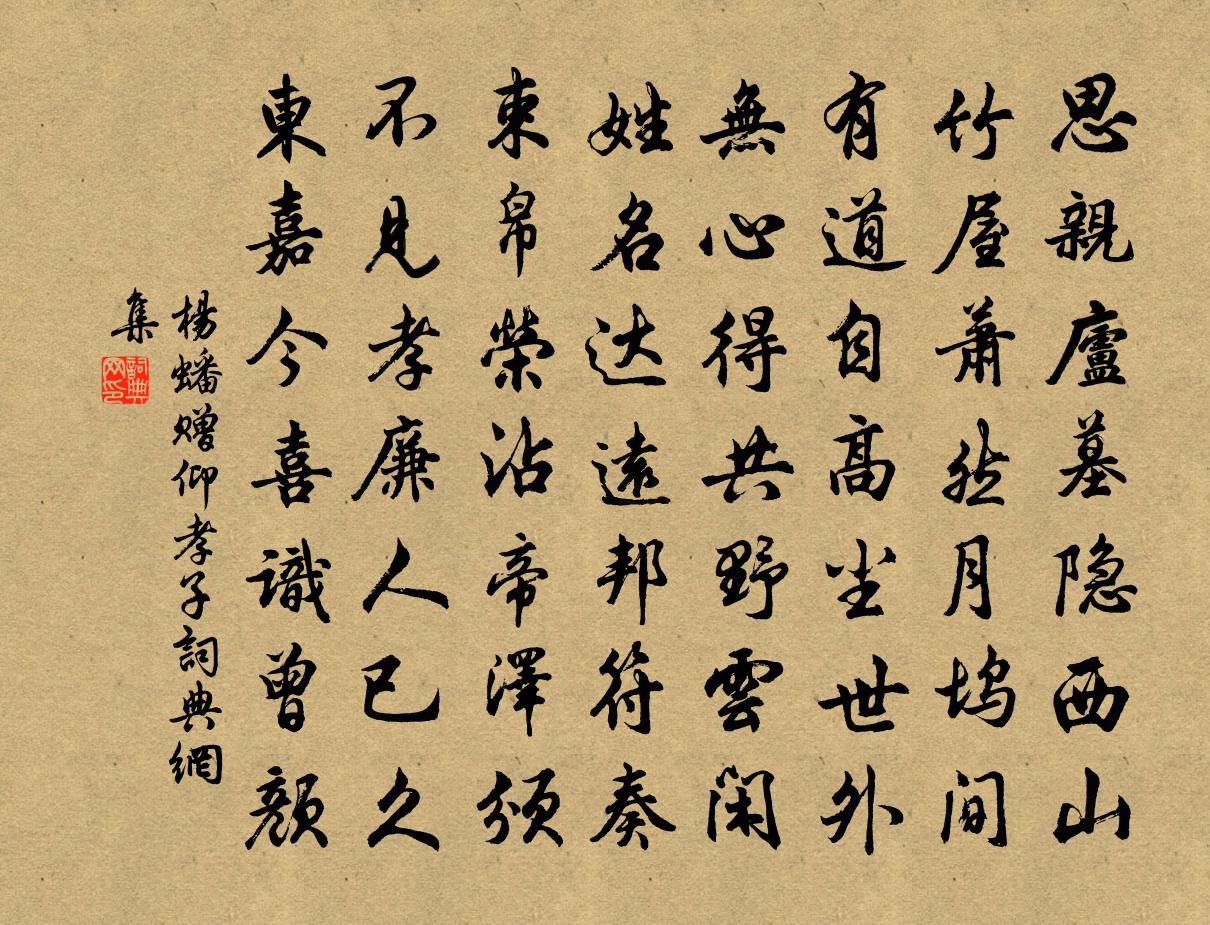 思親廬墓隐西山
竹屋蕭然月塢间
有道自高尘世外
無心得共野雲闲
姓名达遠邦符奏
束帛榮沾帝澤頒
不見孝廉人已久
東嘉今喜識曾顔
楊蟠赠仰孝子詞典網
集
詞典网印